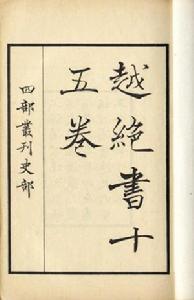 越絕書十
五卷
四部叢刊史部